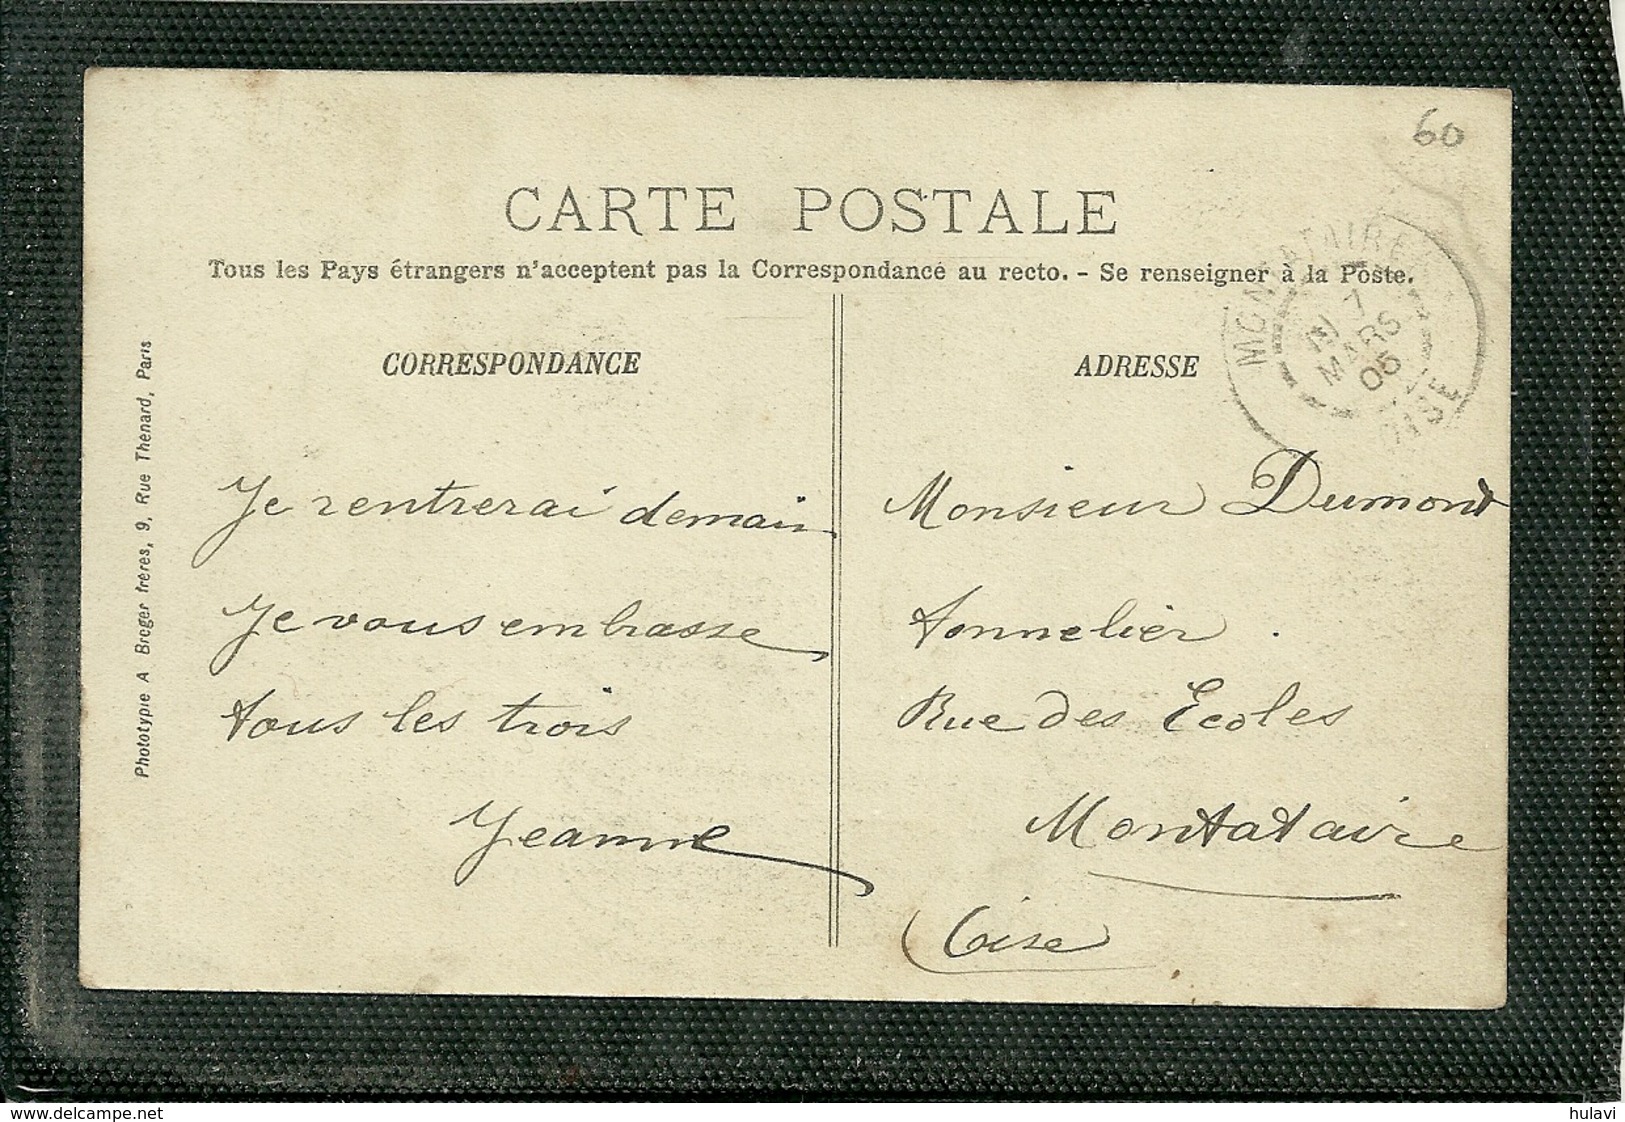 60
CARTE POSTALE
Tous les Pays étrangers n'acceptent pas la Correspondance au recto. - Se renseigner à la Poste.
MONTATAIRE
7
MARS
05
OISE
CORRESPONDANCE
Je rentrerai demain
Je vous embrasse
tous les trois
Jeanne
ADRESSE
Monsieur Dumont
tonnelier.
Rue des Ecoles
Montataire
(Oise
Phototypie A Breger frères, 9, Rue Thenard, Paris
www.delcampe.net
hulavi